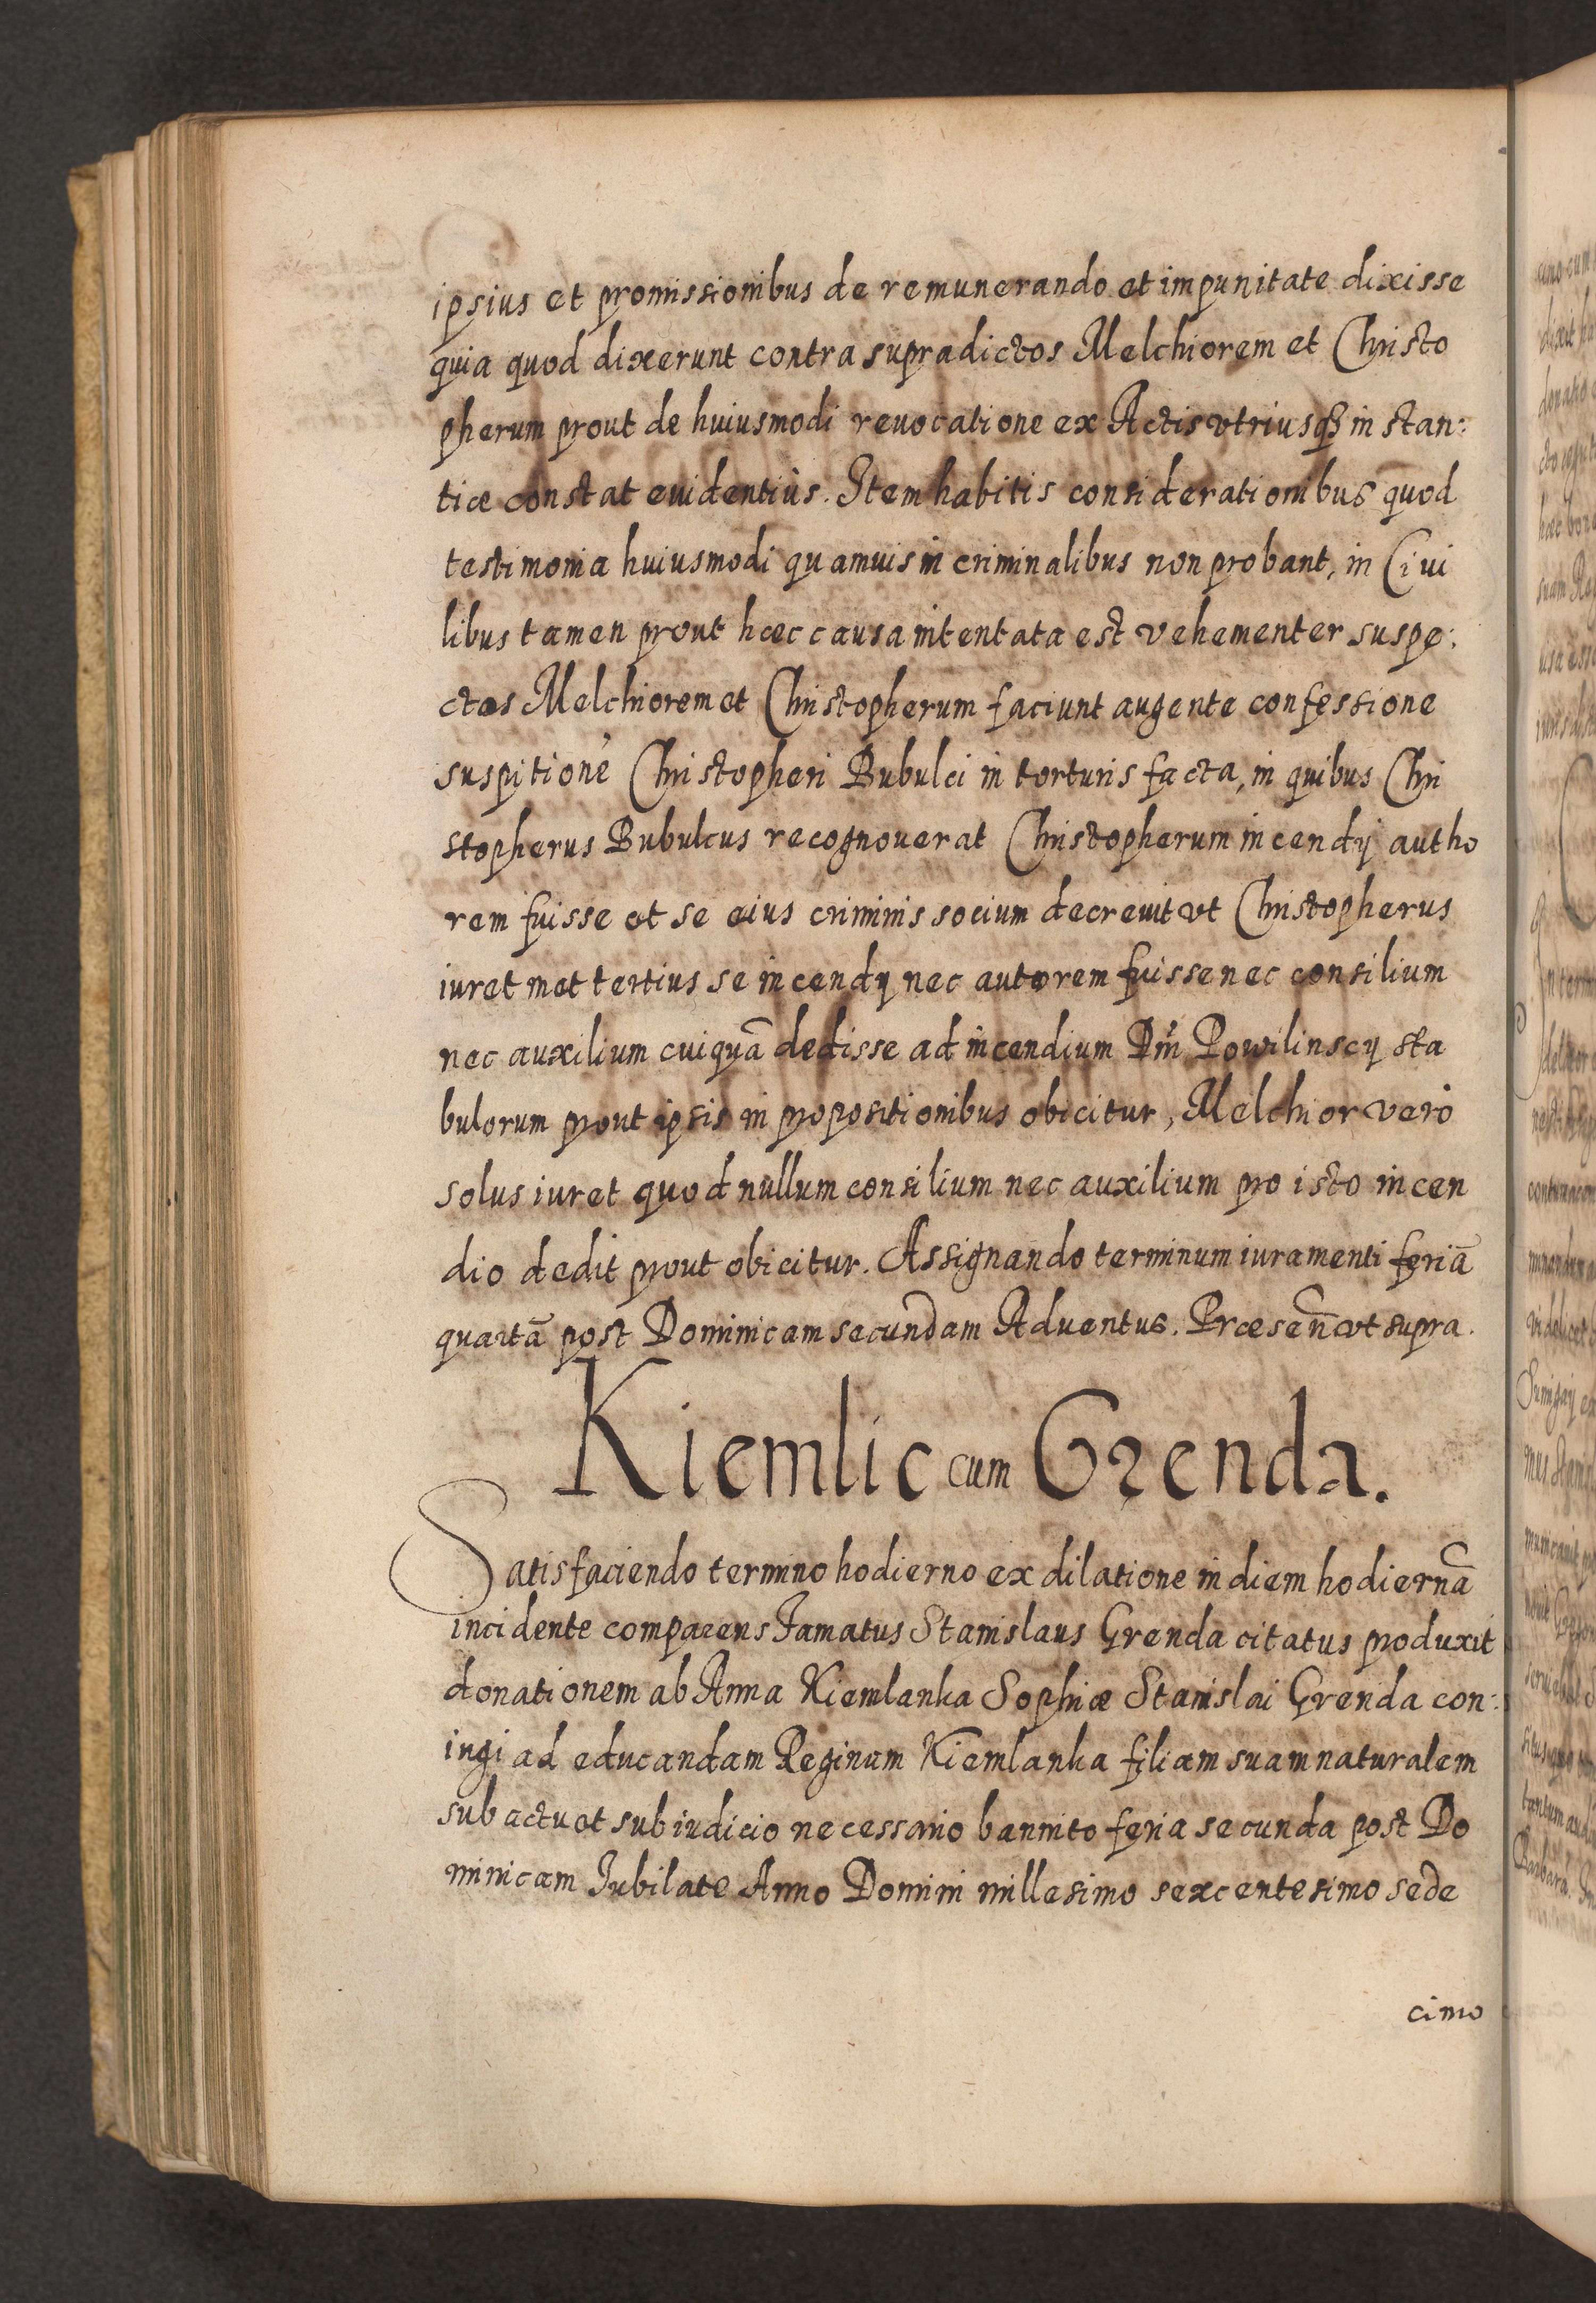 ipsius et promissionibus de remunerando et impunitate dixisse
quia quod dixerunt contra supradictos Melchiorem et Christo
pherum prout de huiusmodi reuocatione ex Actis vtriusqȝ instan:
tiæ constat euidentiùs. Item habitis considerationibus quod
testimonia huiusmodi quamuis in criminalibus non probant, in Ciui
libus tamen prout hæc causa intentata est vehementer suspe:
ctos Melchiorem et Christopherum faciunt augente confessione
suspitione Christopheri Bubulci in torturis facta, in quibus Chri
stopherus Bubulcus recognouerat Christopherum incendij autho
rem fuisse et se eius criminis socium decreuit vt Christopherus
iuret met tertius se incendij nec autorem fuisse nec consilium
nec auxilium cuiquã dedisse ad incendium Dñi Powilinscij sta
bulorum prout ipsis in propositionibus obicitur, Melchior vero
solus iuret quod nullum consilium nec auxilium pro isto incen
dio dedit prout obicitur. Assignando terminum iuramenti feriã
quartã post Dominicam secundam Aduentus. Præsen̄ vt supra.
Kiemlic cum Grenda.
Satisfaciendo termino hodierno ex dilatione in diem hodiernã
incidente comparens Famatus Stanislaus Grenda citatus produxit
donationem ab Anna Kiemlanka Sophiæ Stanislai Grenda con:
iugi ad educandam Reginam Kiemlanka filiam suam naturalem
sub actu et sub iudicio necessario bannito feria secunda post Do
minicam Jubilate Anno Domini millesimo sexcentesimo sede
cimo